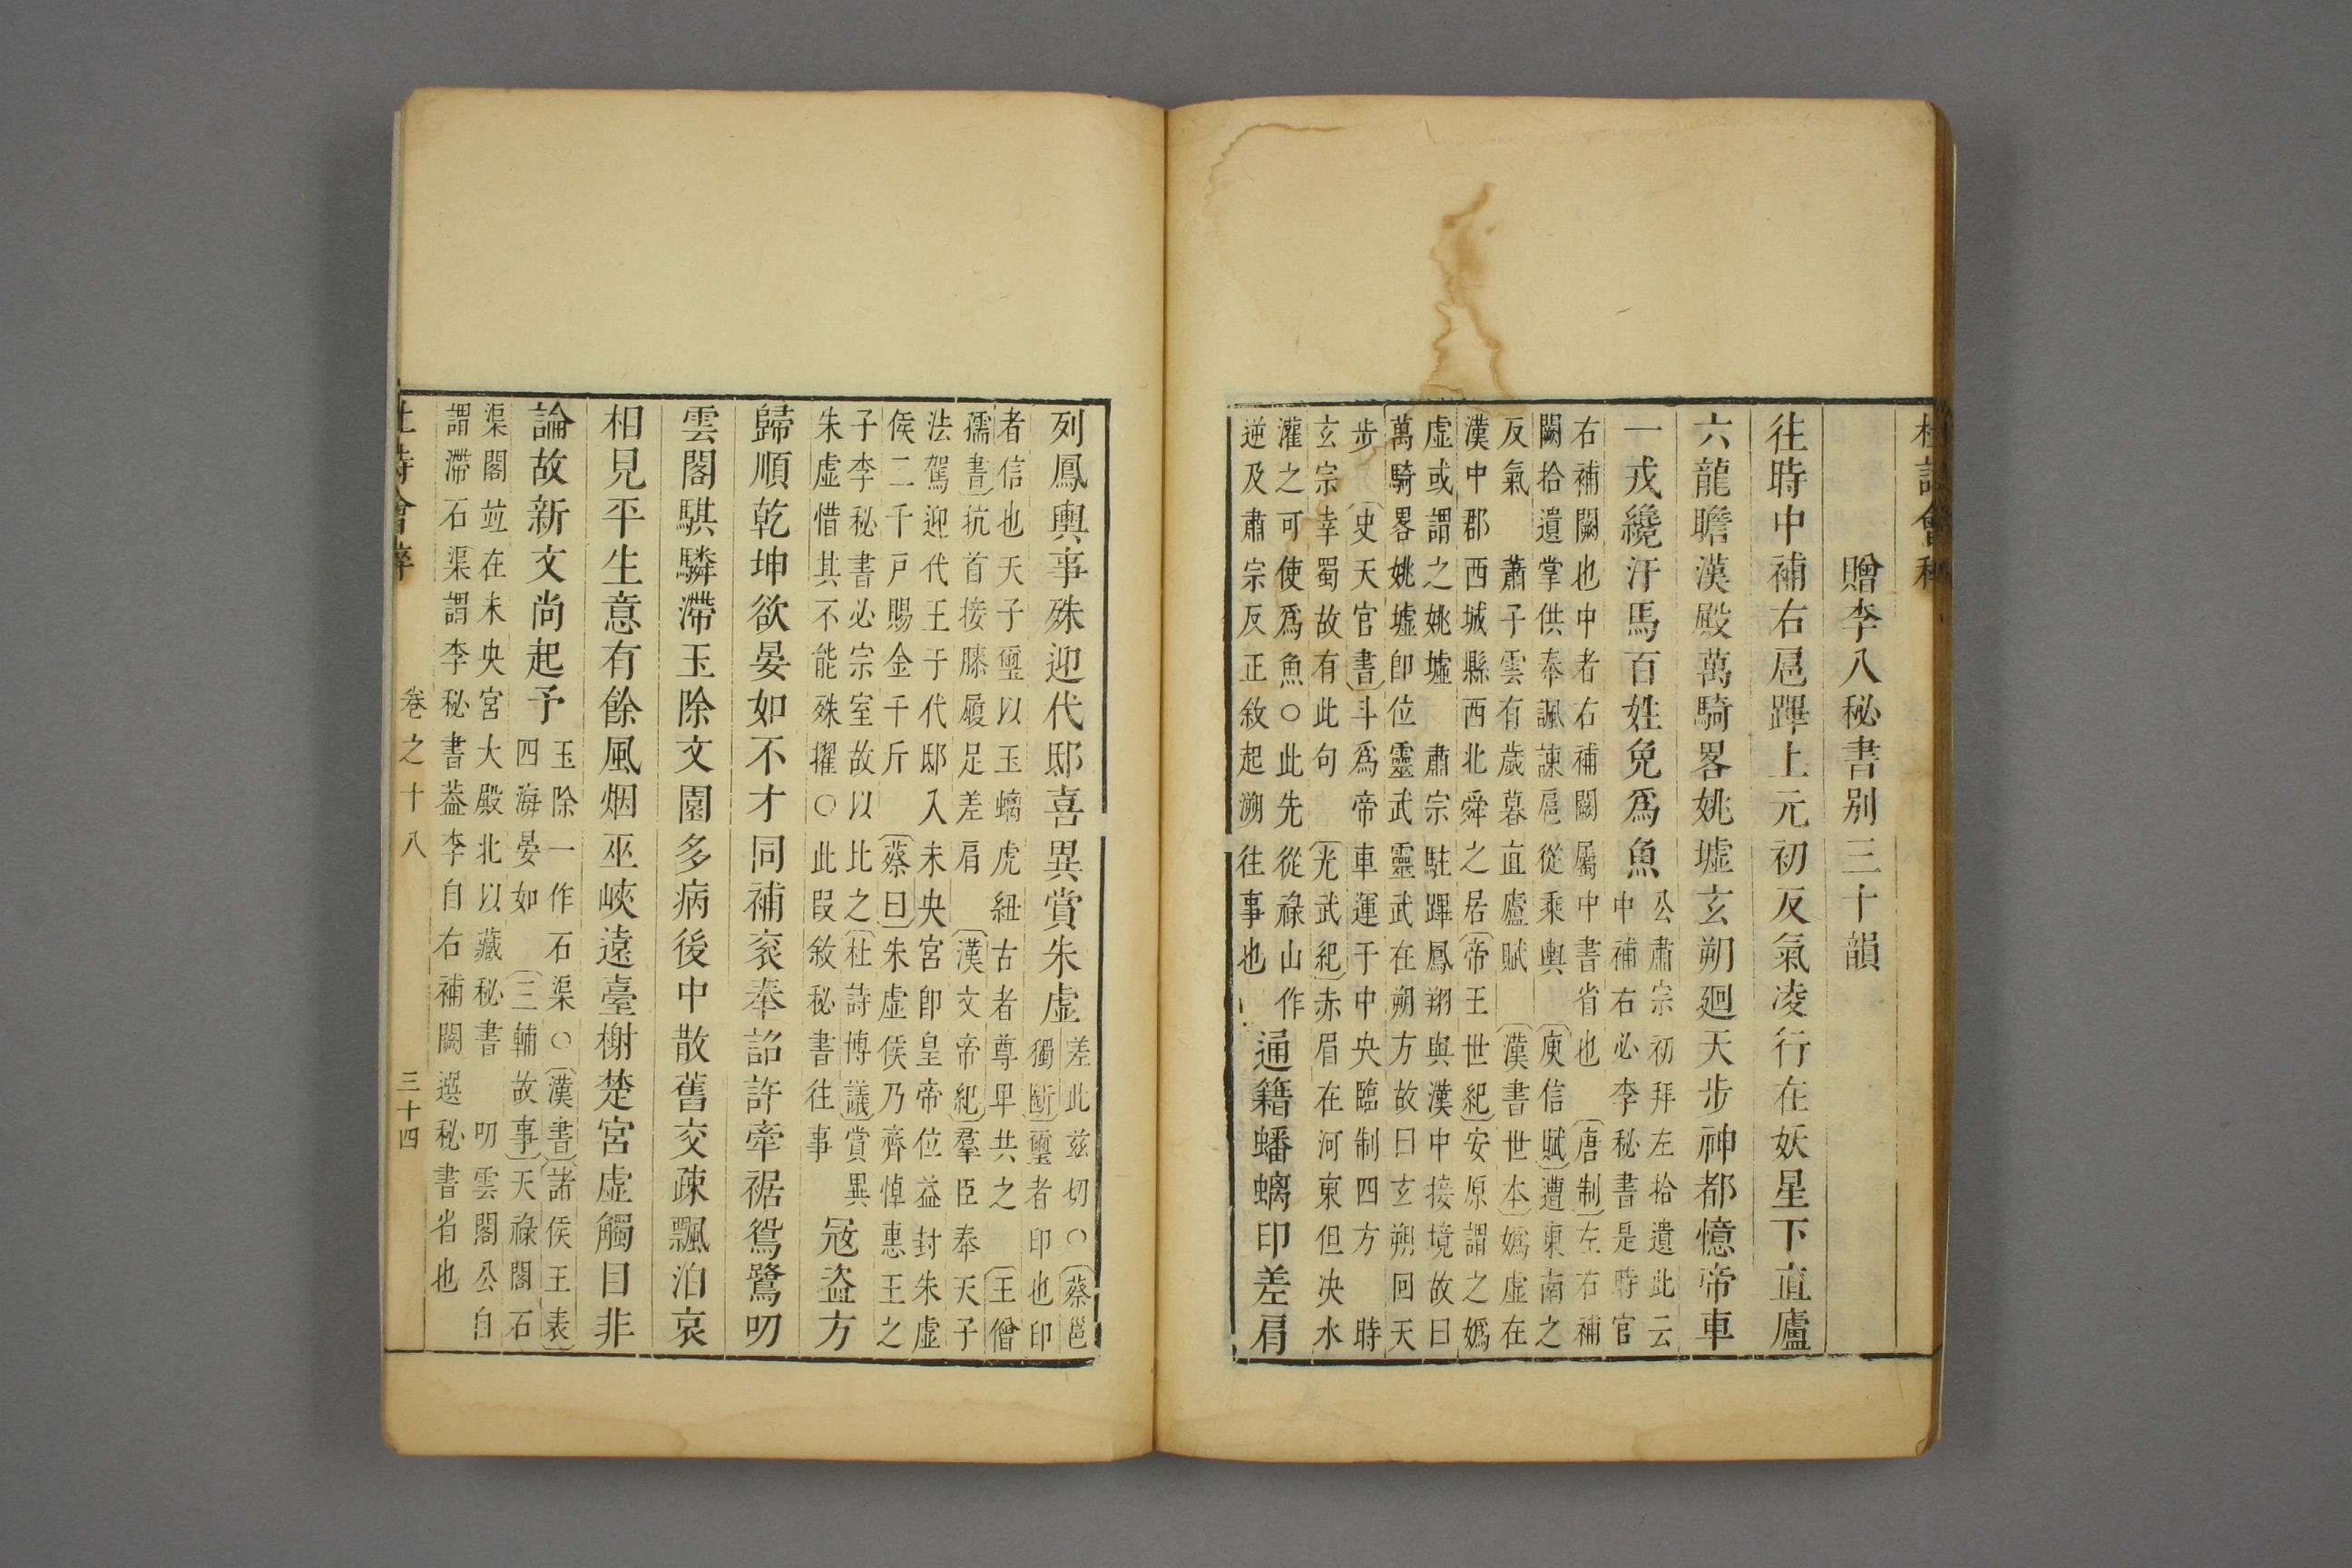 杜詩會稡
贈李八秘書别三十韻
往時中補右扈蹕上元初反氣凌行在妖星下直廬
六龍瞻漢殿萬騎畧姚墟玄朔廻天步神都憶帝車
一戎纔汗馬百姓免爲魚
公肅宗初拜左拾遺此云
中補右必李秘書是時官
右補闕也中者右補闕屬中書省也〔唐制〕左右補
闕拾遺掌供奉諷諫扈從乘輿〔庾信賦〕遭東南之
反氣 蕭子雲有歲暮直廬賦〔漢書世本〕嬀虛在
漢中郡西城縣西北舜之居〔帝王世紀〕安原謂之嬀
虛或謂之姚墟 肅宗駐蹕鳳翔與漢中接境故曰
萬騎畧姚墟卽位靈武靈武在朔方故曰玄朔回天
步〔史天官書〕斗爲帝車運于中央臨制四方 時
玄宗幸蜀故有此句〔光武紀〕赤眉在河東但决水
灌之可使爲魚○此先從祿山作
逆及肅宗反正敘起溯往事也
通籍蟠螭印差肩
列鳳輿事殊迎代邸喜異賞朱虛
差此兹切○〔蔡邕
獨斷〕璽者印也印
者信也天子璽以玉螭虎紐古者尊卑共之〔王僧
孺書〕抗首接膝履足差肩〔漢文帝紀〕羣臣奉天子
法駕迎代王于代邸入未央宮卽皇帝位益封朱虛
侯二千戸賜金千斤〔蔡曰〕朱虛侯乃齊悼惠王之
子李秘書必宗室故以比之〔杜詩博議〕賞異
朱虛惜其不能殊擢○此叚敘秘書往事
冦盗方
歸順乾坤欲晏如不才同補衮奉詔許牽裾鴛鷺叨
雲閣騏驎滯玉除文園多病後中散舊交疎飄泊哀
相見平生意有餘風烟巫峽遠臺榭楚宮虛觸目非
論故新文尚起予
玉除一作石渠○〔漢書〕〔諸侯王表〕
四海晏如〔三輔故事〕天祿閣石
渠閣竝在未央宮大殿北以藏秘書 叨雲閣公自
謂滯石渠謂李秘書葢李自右補闕選秘書省也
杜詩會稡
卷之十八
三十四